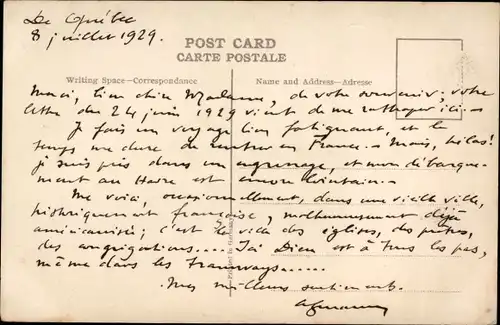 De Québec
8 juillet 1929.
POST CARD
CARTE POSTALE
Writing Space—Correspondance
Name and Address—Adresse
Merci, bien chère Madame, de votre souvenir; votre
lettre du 24 juin 1929 vient de me rattraper ici.-
Je fais un voyage bien fatigant, et le
temps me dure de rentrer en France.- Mais, hélas!
je suis pris dans un engrenage, et mon débarque-
ment au Havre est encore lointain.-
Me voici, occasionnellement, dans une vieille ville,
historiquement française, malheureusement déjà
américanisée; c'est la ville des églises, des prêtres,
des congrégations.... Ici Dieu est à tous les pas,
même dans les tramways.....
Mes meilleurs sentiments.
Printed in Germany